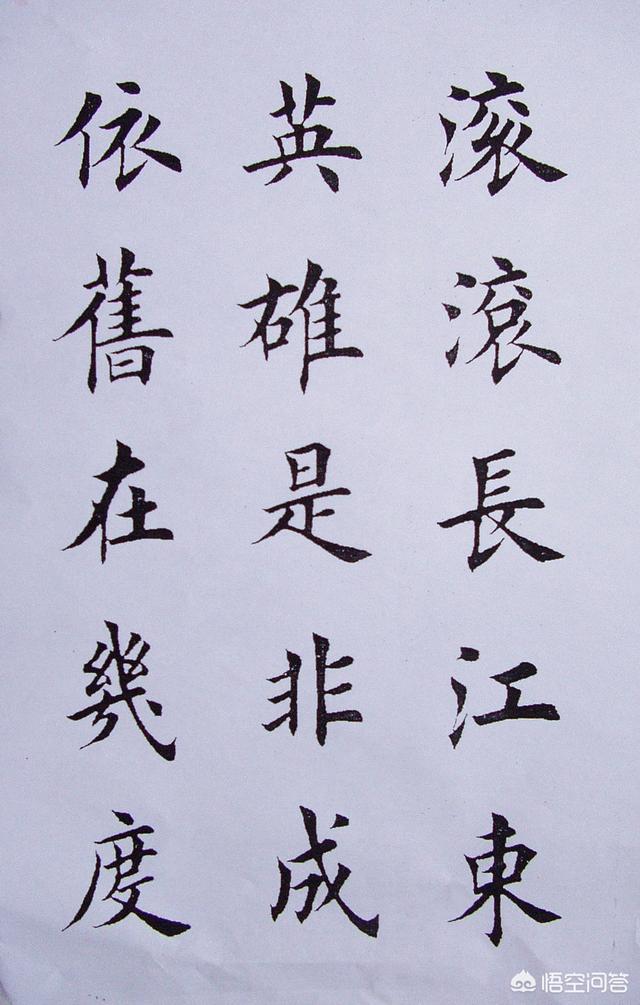 滚滾長江東
英雄是非成
依舊在幾度
悟空问答